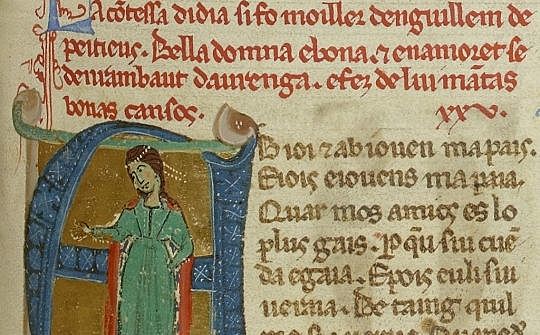 La cõtessa didia si fo moiller dengiullem de
peitieus. Bella domna ebona. ⁊ enamoret se
denrambaut daurenga. efez de lui mãtas
bonas cansos. XXV.
A B ioi ⁊ abiouen mapais.
Eiois eiouens mapaia.
Quar mos amics es lo
plus gais. P qu siu cuẽ
da egaia. Epois euli siu
ueraia. Be taing quil